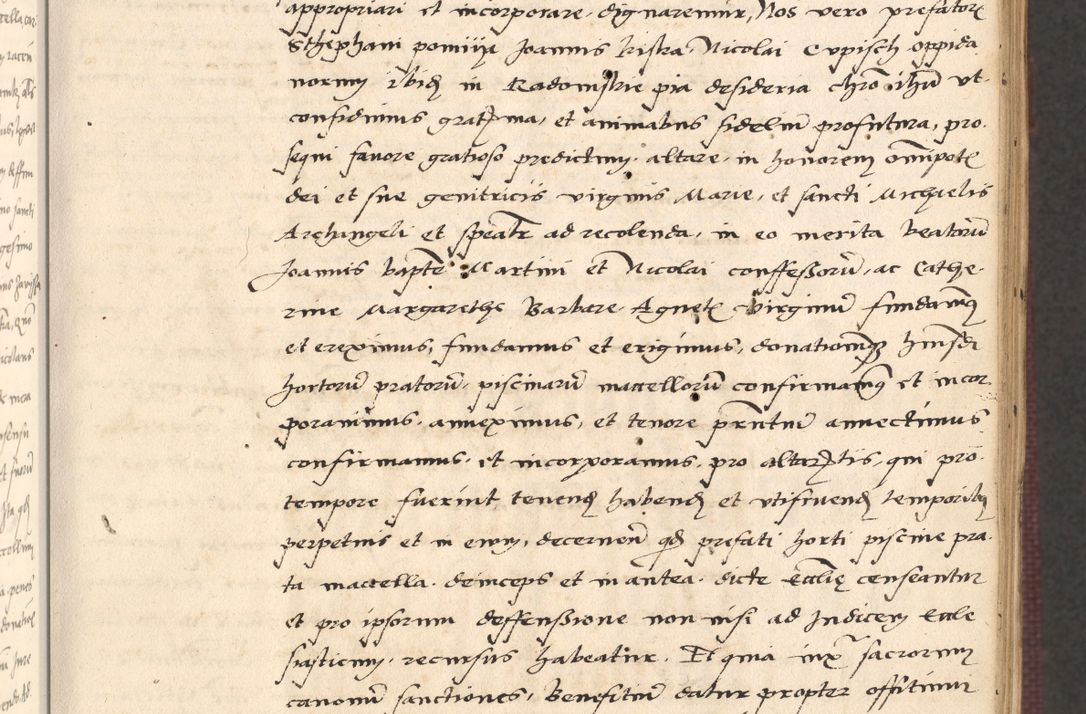 appropriari et incorporare dignaremur, Nos vero prefatorꝭ
Sthephani pomiiii Joannis Kistka Nicolai Cvpisch oppida
norum ibidꝫ in Radomskie pia desideria chrō ihū ut
confidimus grat ma, et animabus fidelium profutura, pro
sequi fauore gratioso predictum altare in honorem omīpotꝭ
dei et sue genitricis virginis Marie, et sancti Michaelis
Archangeli et spēatr ad recolenda, in eo merita beatorū
Joannis bapte Martini et Nicolai conffessorū, ac Cathe
rine Margarethe Barbare Agnetꝭ virginū fundamꝯ
et ereximus, fundamus et erigimus, donationēqꝫ hmsdi
hortorū pratorū, piscinarū maccellorū confirmamꝯ et incor
poraninus, anneximus, et tenore prntiū annectimus
confirmamus et incorporamus, pro altaristis, qui pro
tempore fuerint tenendꝫ habendꝫ et utifruendꝫ temporibꝫ
perpetuis et in euum, decernentē qd prefati horti piscine pra
ta maccella deinceps et in antea dicte Ecclie censeantur
et pro ipsorum deffenssione non nisi ad Judicem Eccle
siasticum recursus habeatur. Et quia iux sacrorum
canonū sanctiones, Benefitiū datur propter offitium